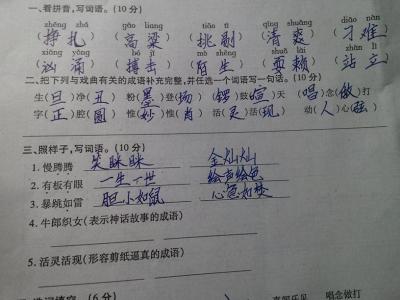 一、看拼音,写词语。(10分)
zhēng zhá gāo liang tiāo tī qīng shuǎng diāo nàn
(挣扎) (高粱) (挑剔) (清爽) (刁难)
xiōng yǒng bó jī mò shēng shuǎ lài zhàn lì
(汹涌) (搏击) (陌生) (耍赖) (站立)
二、把下列与戏曲有关的成语补充完整,并任选一个词语写一句话。(10分)
生(旦)净(丑) 粉(墨)登(场) 锣(鼓)喧(天) 唱(念)做(打)
字(正)腔(圆) 惟(妙)惟(肖) 活(灵)活(现) 动(人)心(弦)
三、照样子,写词语。(10分)
1. 慢腾腾 笑眯眯 金灿灿
2. 有板有眼 一生一世 绘声绘色
3. 暴跳如雷 胆小如鼠
4. 牛郎织女(表示神话故事的成语)
5. 活灵活现(形容剪纸逼真的成语)
(6分) 喜闻乐见 唱念做打